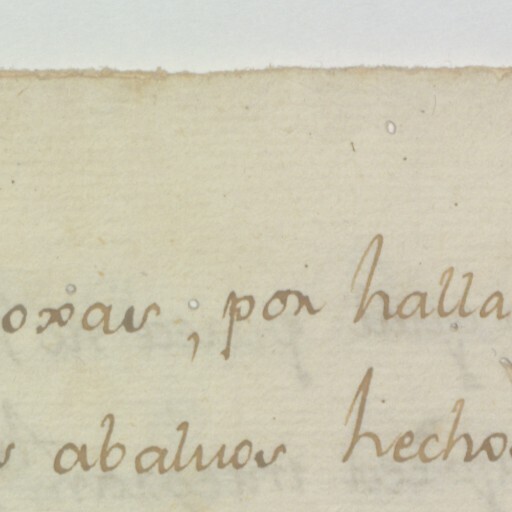 oras, por halla
s abaluos hecho